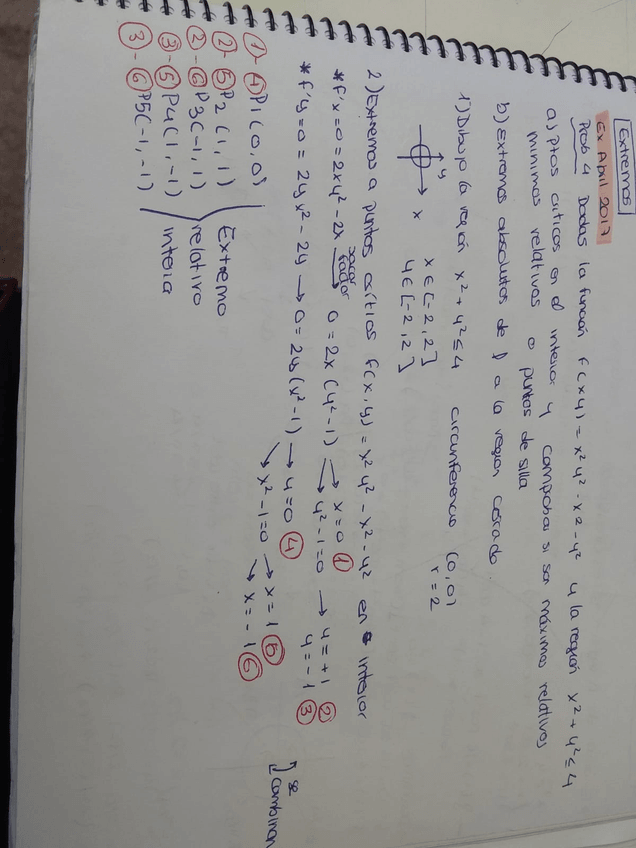 Extremos
Ex Abril 2017
Prob 4 Dadas la función f(x y) = x² y² - x² - y² y la región x² + y² ≤ 4
a) Ptos críticos en el interior y comprobar si son máximos relativos
mínimos relativos o puntos de silla
b) Extremos absolutos de f a la región cerrada
1) Dibujo la región x² + y² ≤ 4 circunferencia (0,0)
r = 2
y
x
x ∈ [-2, 2]
y ∈ [-2, 2]
2) Extremos o puntos críticos f(x, y) = x² y² - x² - y² en interior
* f'x = 0 = 2xy² - 2x sacar factor → 0 = 2x (y² - 1) → x = 0 ①
→ y² - 1 = 0 → y = +1 ②
y = -1 ③
* f'y = 0 = 2y x² - 2y → 0 = 2y (x² - 1) → y = 0 ④
→ x² - 1 = 0 → x = 1 ⑤
→ x = -1 ⑥
se combinan
① - ④ P1 (0, 0)
② - ⑤ P2 (1, 1)
② - ⑥ P3 (-1, 1)
③ - ⑤ P4 (1, -1)
③ - ⑥ P5 (-1, -1)
Extremo
relativo